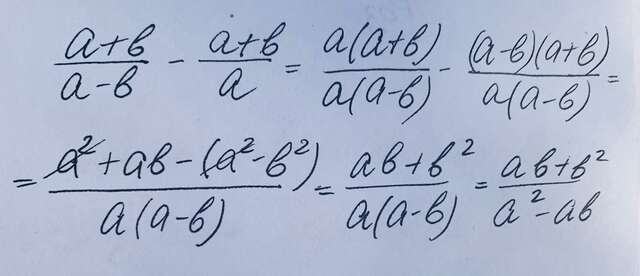 (a+b)/(a-b) - (a+b)/a = a(a+b)/a(a-b) - (a-b)(a+b)/a(a-b) =
= (a²+ab-(a²-b²))/a(a-b) = (ab+b²)/a(a-b) = (ab+b²)/(a²-ab)